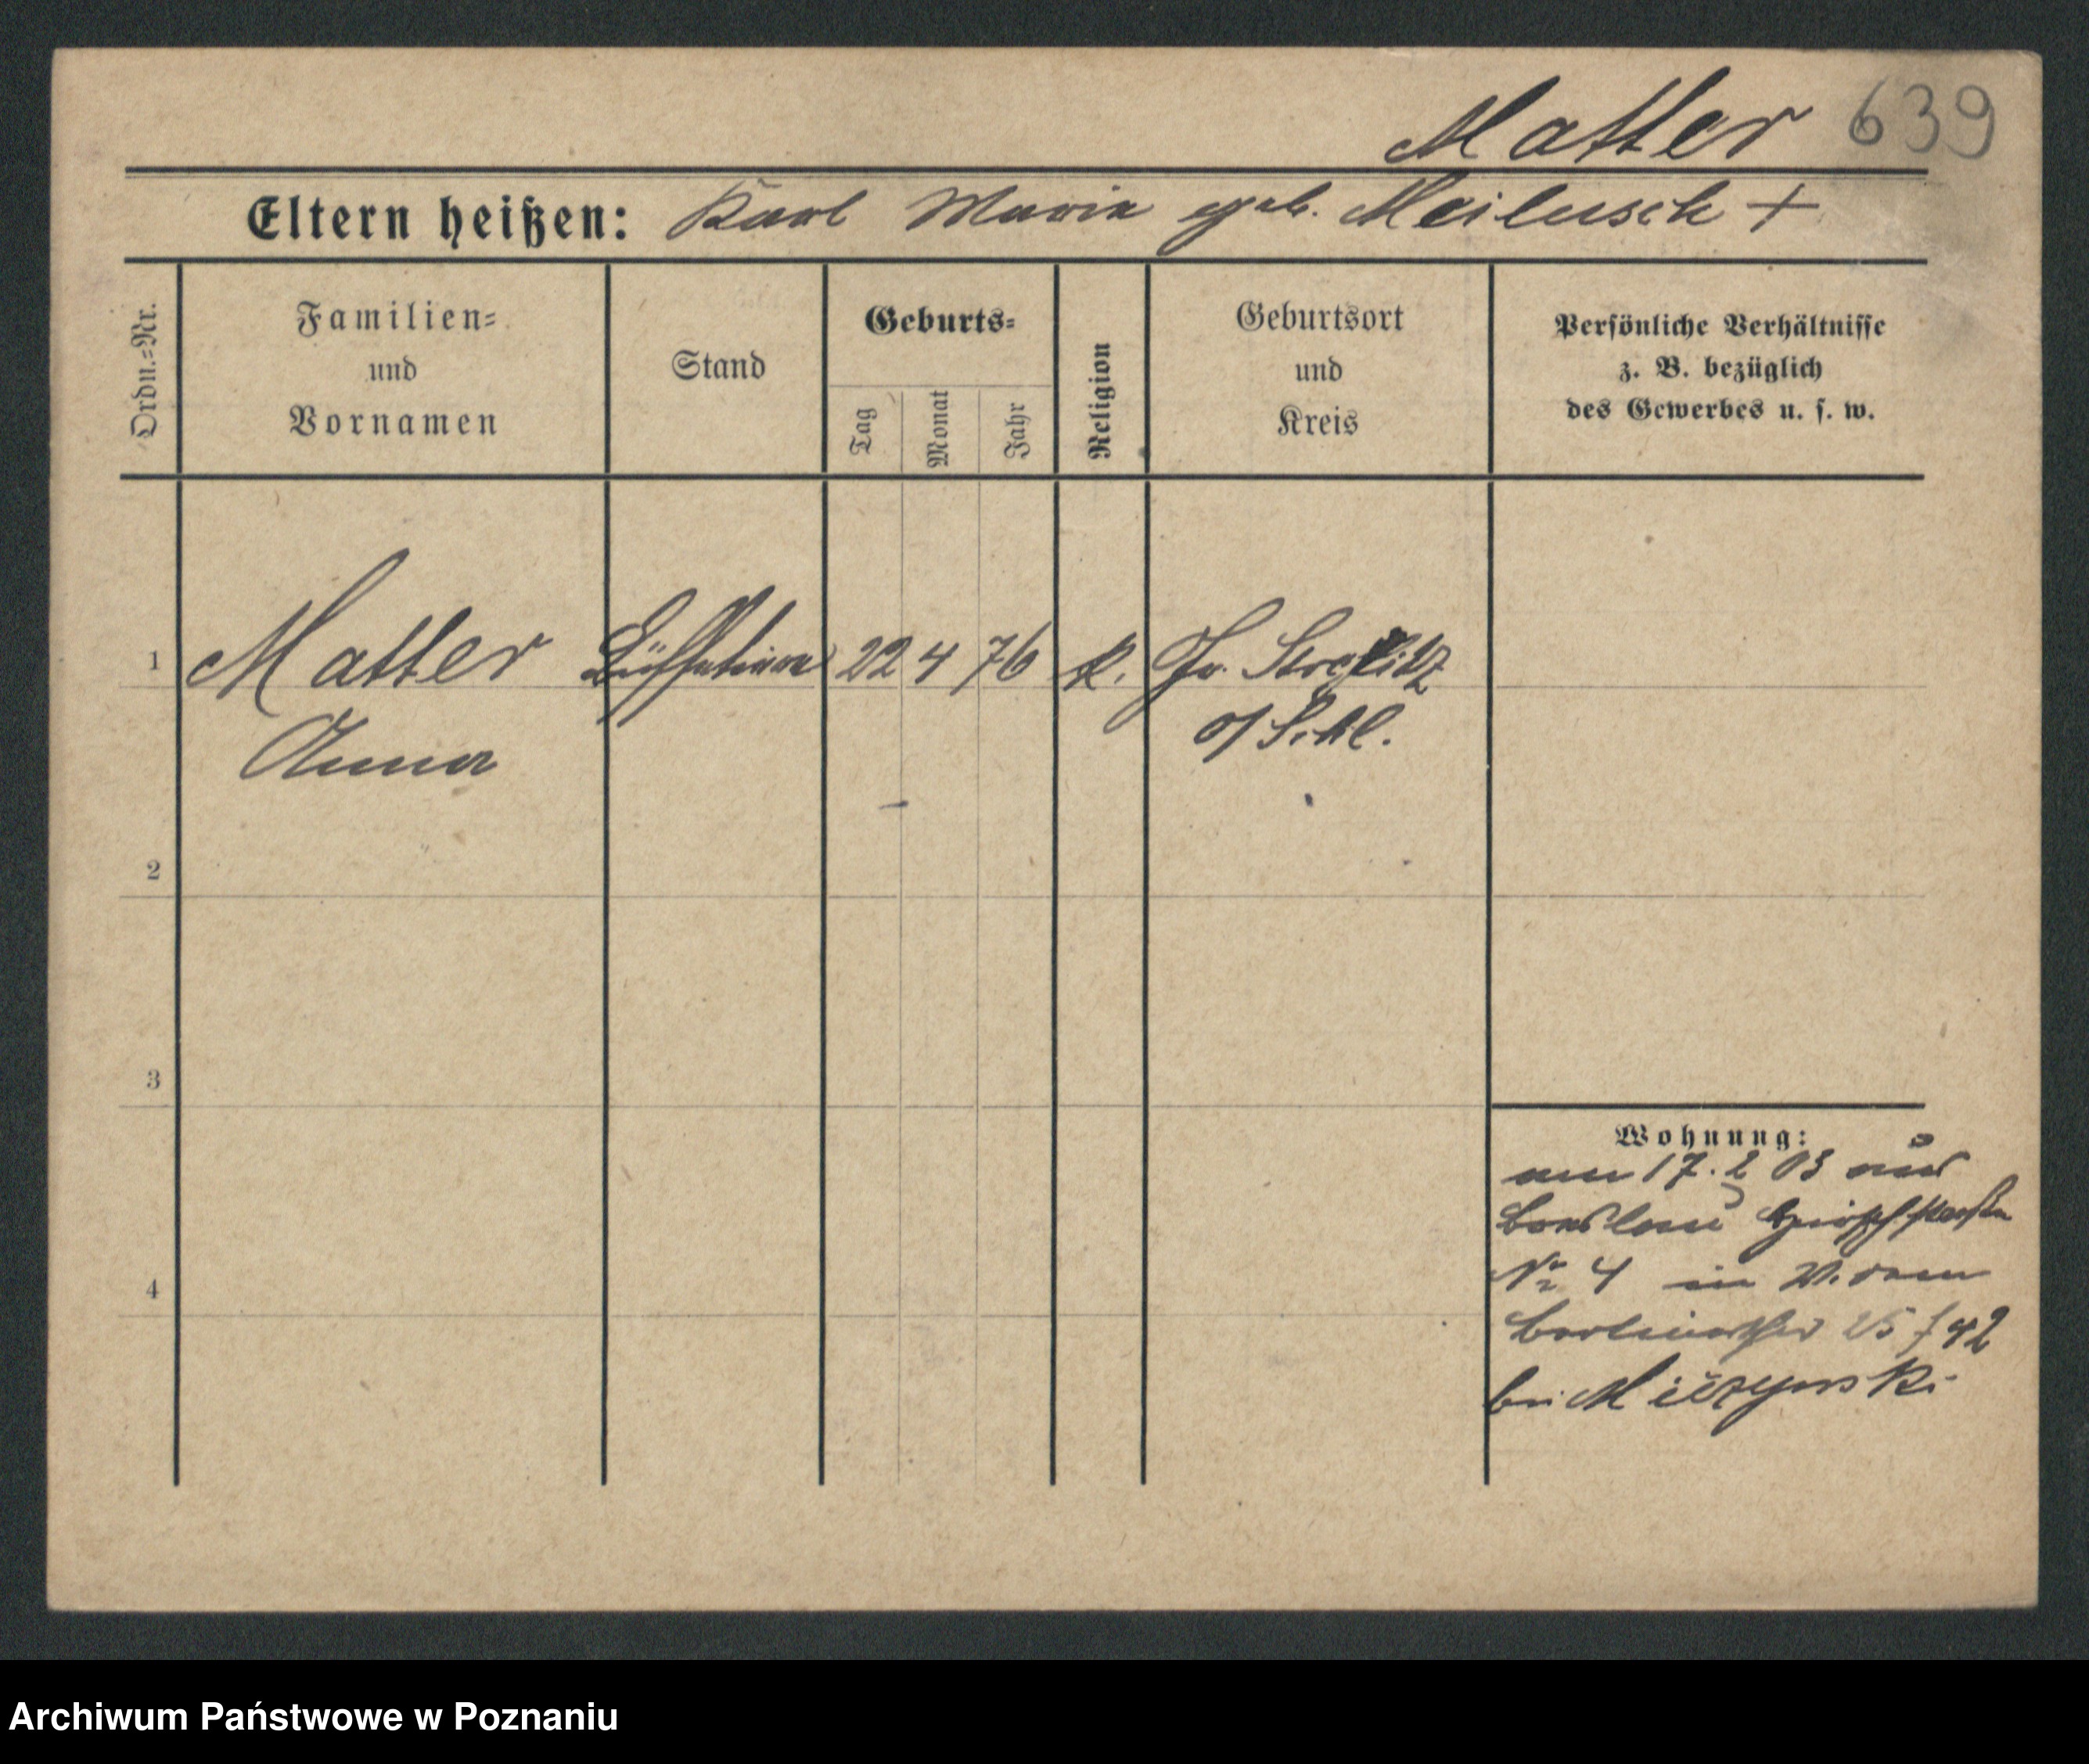 Matter 639
Eltern heißen: Karl Maria geb. Meilusch +
Ordn.=Nr.
Familien=
und
Vornamen
Stand
Geburts=
Tag
Monat
Jahr
Religion
Geburtsort
und
Kreis
Persönliche Verhältnisse
z. B. bezüglich
des Gewerbes u. s. w.
1 Matter 22 4 76 k. Gr. Strehlitz
Anna o/Schl.
2
3
4
Wohnung:
am 17. 2 03 aus
Breslau
No 4 in
42
bei
Archiwum Państwowe w Poznaniu